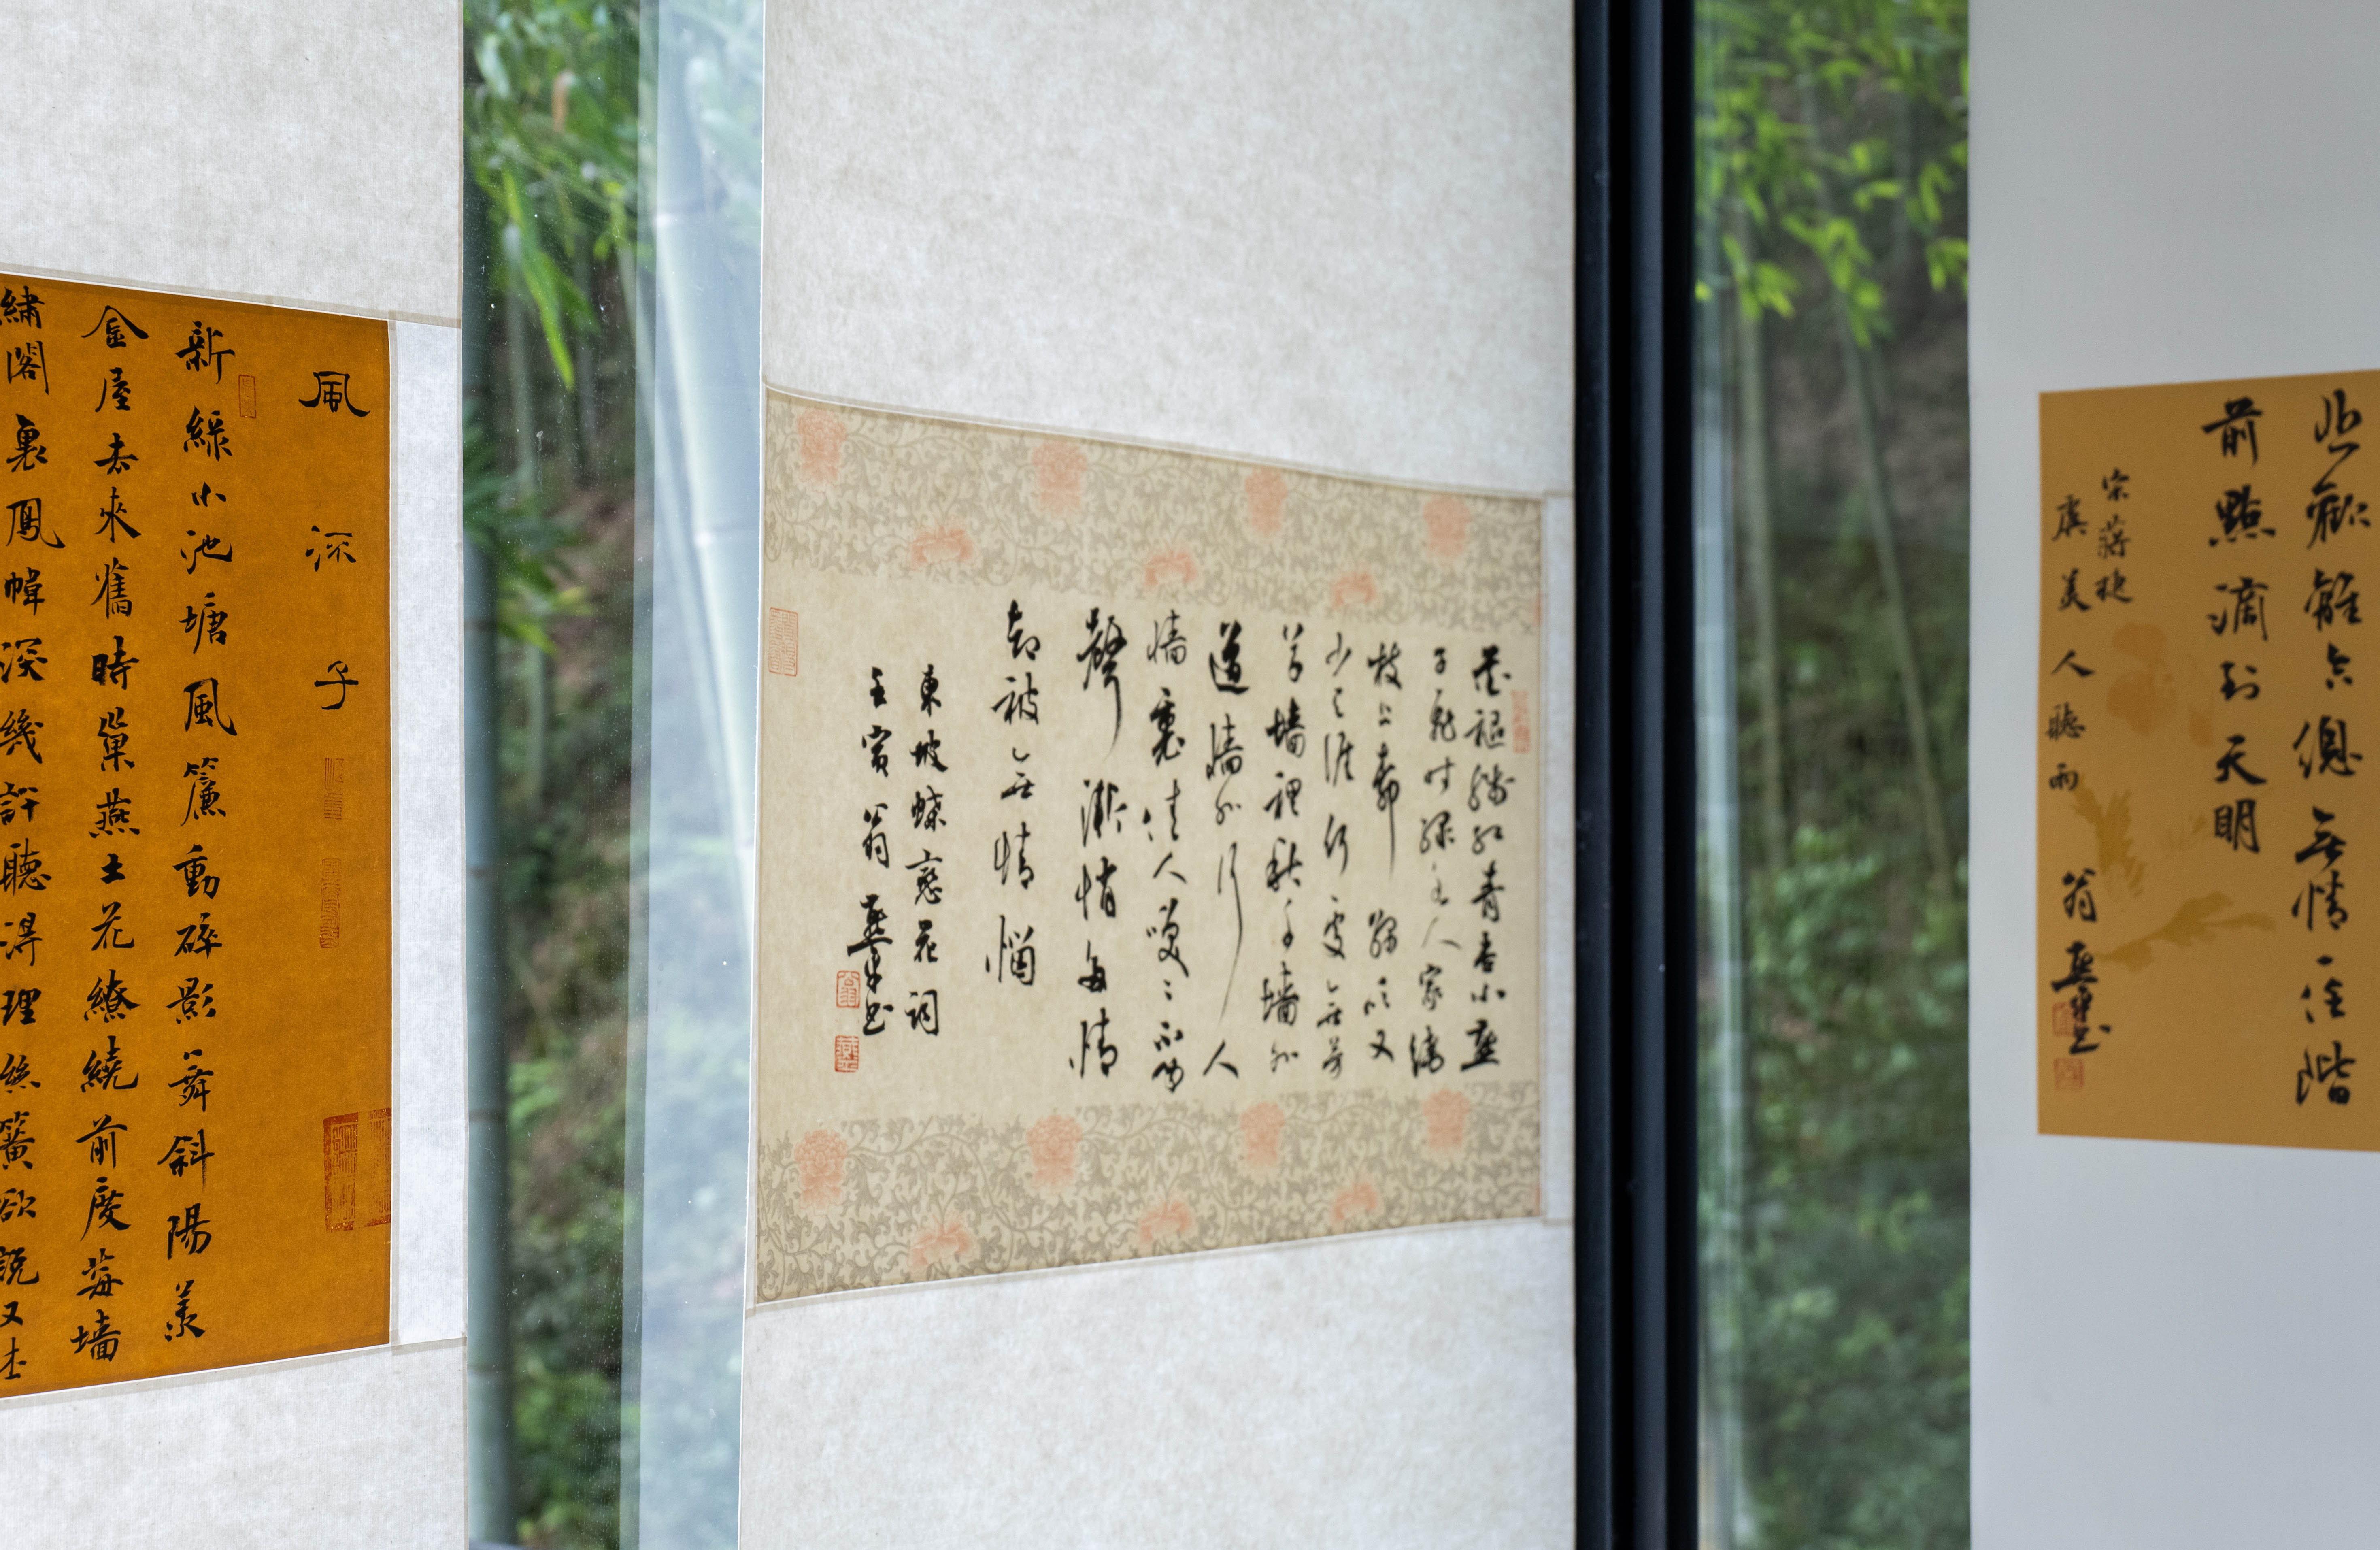 風流子
新綠小池塘風簾動碎影舞斜陽羨
金屋去來舊時巢燕土花繚繞前度莓墻
繡閣裏鳳幃深幾許聽得理絲簧欲說又
花褪殘紅青杏小燕
子飛時綠水人家繞
枝上柳綿吹又
少天涯何處無芳
草墻裡秋千墻外
道墻外行人
墻裏佳人笑〻不聞
聲漸悄多情
却被無情惱
東坡蝶戀花詞
壬寅翁燕書
悲歡離合總無情一任階
前點滴到天明
宋蔣捷
虞美人聽雨 翁燕書